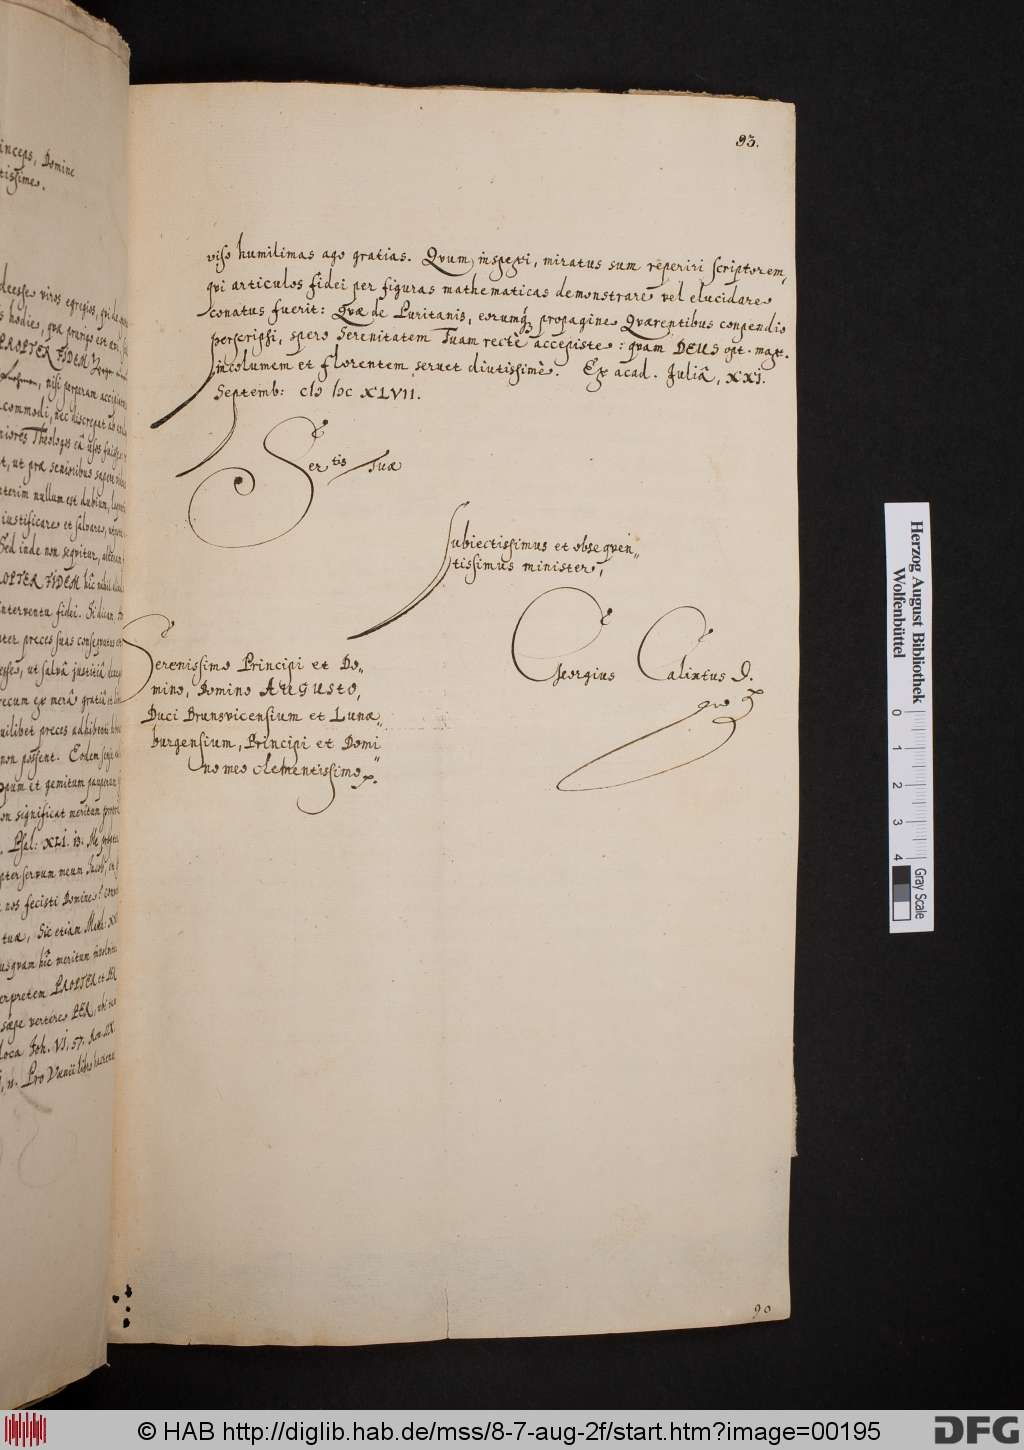 inceps, Domine
tissime.
deesse viros egregios, qui de
s hodie, quæ prurigo est
PROPTER FIDEM
nisi perperam accipiatur
commodi, nec discrepat ab
niores Theologos eâ usos fuisse
t, ut præ senioribus sapere
nterim nullum est dubium,
iustificare et salvare,
Sed inde non seqvitur,
PROPTER FIDEM hîc nihil
interventu fidei. Si dicam
ter preces suas conservatus
esse, ut salvâ justitiâ
recum ex merâ gratiâ et
quilibet preces adhibenti
non possent. Eodem
opum et gemitum pauperum
on significat meritum
Psal: XLI. 13. Me
pter servum meum Jacob,
nos fecisti Domine?
tuæ, Sic etiam Matth: XX
usqvam hîc meritum
erpretem PROPTER et PER
sæpe vertere PER, ubi
loca Joh. VI, 57. Rom
n. Pro Vanii libro
93.
viso humilimas ago gratias. Qvum inspexi, miratus sum reperiri scriptorem,
qvi articulos fidei per figuras mathematicas demonstrare vel elucidare
conatus fuerit: Qvæ de Puritanis, eorumq; propagine Qværentibus conpendio
perscripsi, spero Serenitatem Tuam rectè accepisse: qvam DEUS opt. max.
incolumem et florentem servet diutissimè. Ex acad. Juliâ, XXI.
Septemb: cIↄ Iↄc XLVII.
Ser tis Tuæ
Subiectissimus et obseqven„
tissimus minister,
Georgius Calixtus D.
Serenissimo Principi et Do„
mino, Domino AUGUSTO,
Duci Brunsvicensium et Lunæ„
burgensium, Principi et Domi„
no meo clementissimo
90
Herzog August Bibliothek
Wolfenbüttel
0 1 2 3 4
Gray Scale
© HAB http://diglib.hab.de/mss/8-7-aug-2f/start.htm?image=00195
DFG